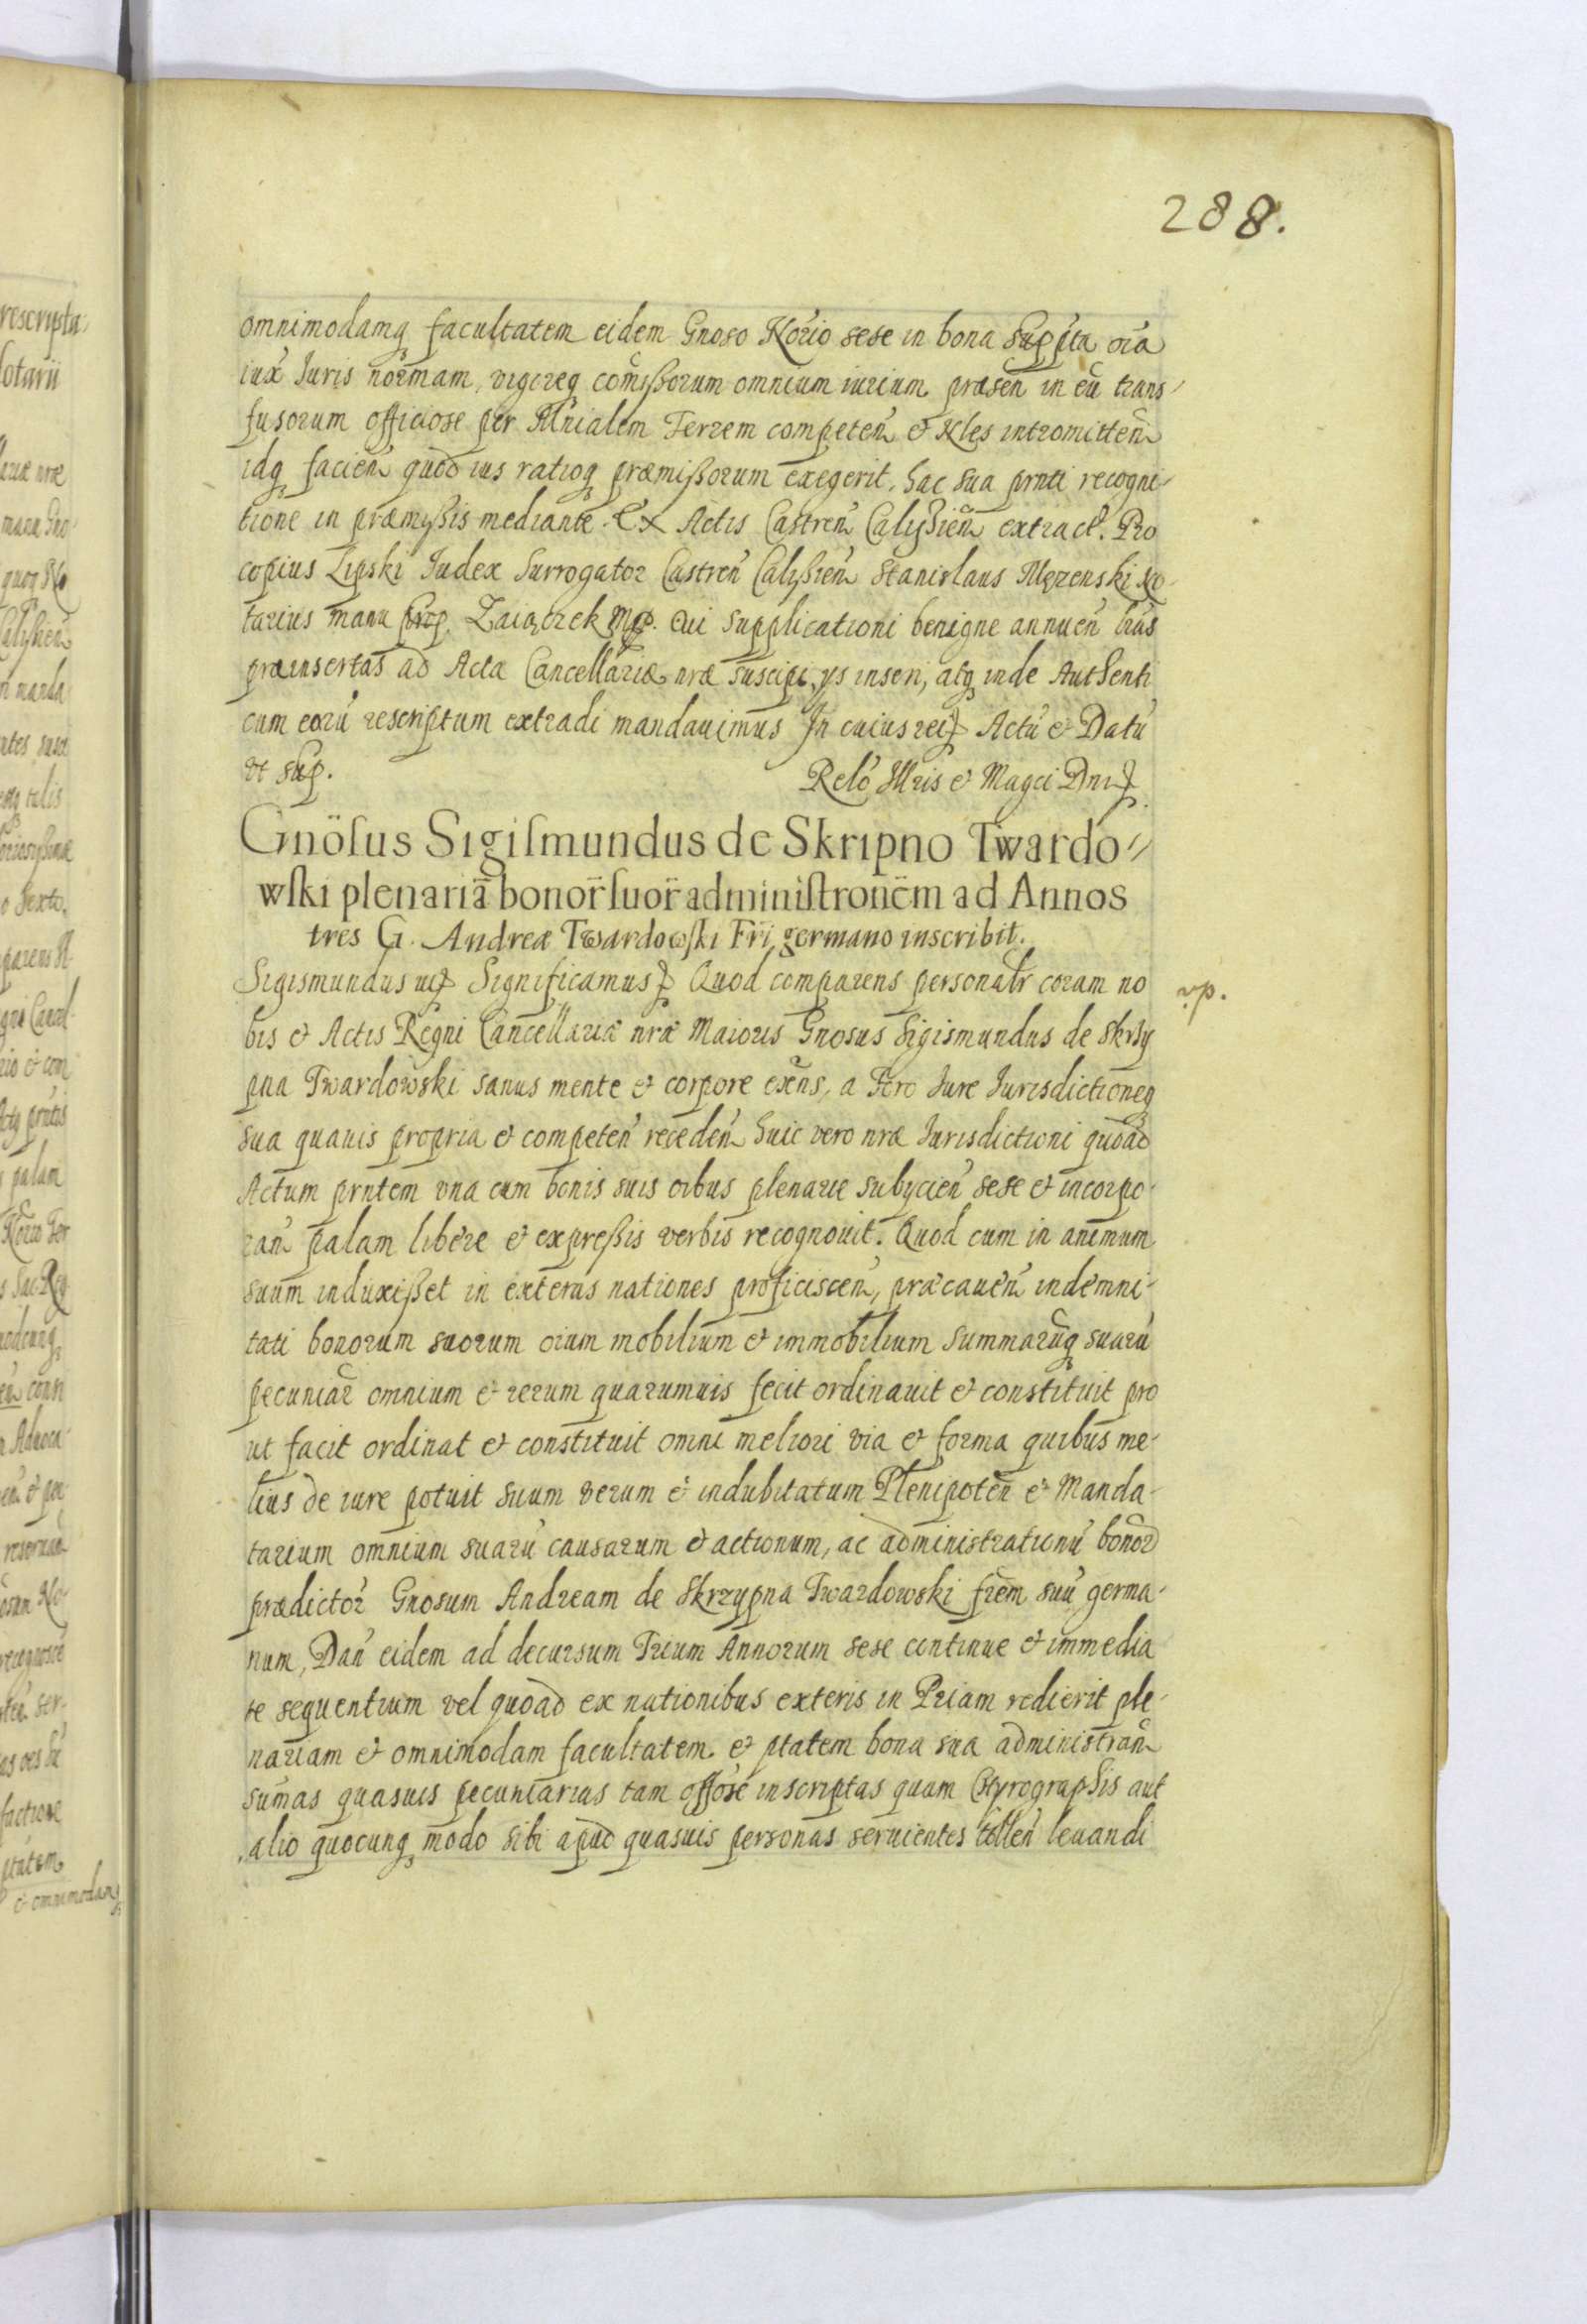 288.
omnimodamq₃ facultatem eidem Gnoso Nōrio sese in bona supp̃ta oīa
iux̃ Iuris normam, vigoreq₃ com̃ißorum omnium iurium præsen̄ in eū trans-
fusorum officiose per Mñialem Terrem competen̄ & Nles intromitten̄
idq₃ facien̄ quod ius ratioq₃ præmißorum exegerit, hac sua prn̄ti recogni-
tione in præmyßis mediante. Ex Actis Castren̄ Calyßien̄ extract. Pro
copius Lipski Iudex Surrogator Castren̄ Calyßien̄ Stanislaus Męzenski No-
tarius manu prop. Zaiączek Mp. Cui supplicationi benigne annuen̄ lr̄as
præinsertas ad Acta Cancellariæ nr̄æ suscipi, ys inseri, atq₃ inde Authenti
cum eorū rescriptum extradi mandauimus In cuius rei Actū & Datū
vt sup.
Relō Illris & Magci Dni
Gnōsus Sigismundus de Skripno Twardo-
wski plenariā bonor̄ suor̄ administronēm ad Annos
tres G. Andreæ Twardowski Fr̄i germano inscribit.
Sigismundus ut Significamus Quod comparens personalr̄ coram no
vp.
bis & Actis Regni Cancellariæ nr̄æ Maioris Gnosus Sigismundus de Skrzy
pna Twardowski sanus mente & corpore exēns, a Foro Iure Iurisdictioneq₃
sua quauis propria & competen̄ receden̄ huic vero nr̄æ Iurisdictioni quoad
Actum prn̄tem vna cum bonis suis oībus plenarie subycien̄ sese & incorpo-
ran̄ palam libere & expreßis verbis recognouit. Quod cum in animum
suum induxißet in exteras nationes proficiscen̄, præcauen̄ indemni-
tati bonorum suorum oīum mobilium & immobilium summarūq₃ suarū
pecuniar̄ omnium & rerum quarumuis fecit ordinauit & constituit pro
ut facit ordinat & constituit omni meliori via & forma quibus me-
lius de iure potuit suum verum & indubitatum Plenipoten̄ & Manda-
tarium omnium suarū causarum & actionum, ac administrationū bonor̄
prædictor̄ Gnosum Andream de Skrzypna Twardowski frēm suū germa-
num, Dan̄ eidem ad decursum Trium Annorum sese continue & immedia
te sequentium vel quoad ex nationibus exteris in Pr̄iam redierit ple-
nariam & omnimodam facultatem & ptatem bona sua administran̄
sum̄as quasuis pecuniarias tam offōse inscriptas quam Chyrographis aut
alio quocunq₃ modo sibi apud quasuis personas seruientes tollen̄ leuandi